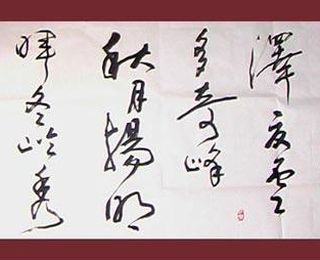 澤夏雲
多奇峰
秋月揚明
暉冬岭秀